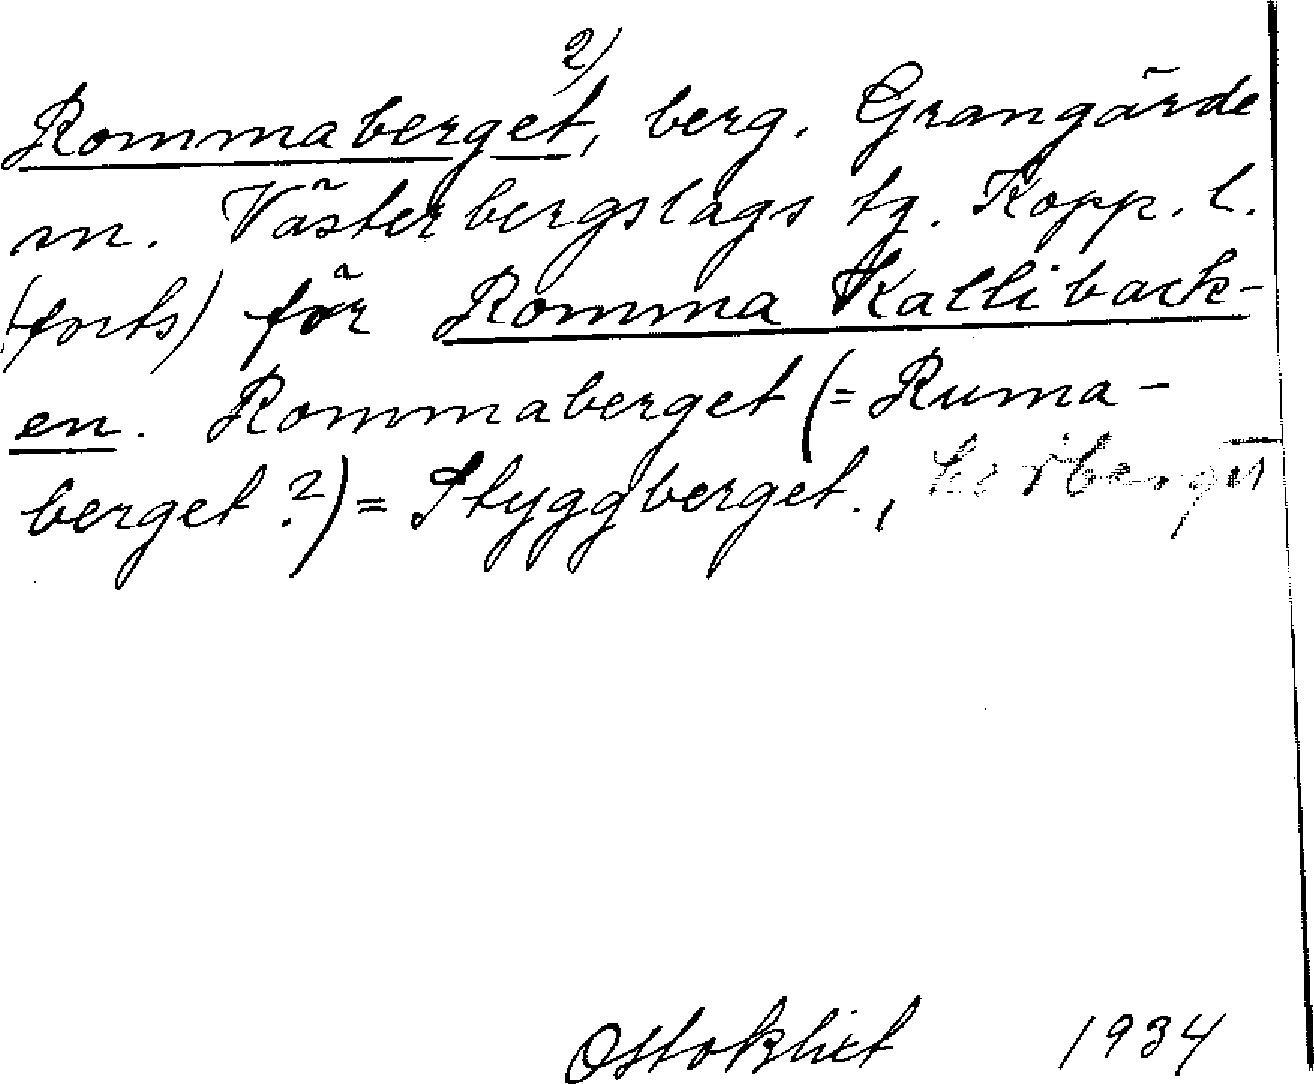 2)
Rommaberget, berg. Grangärde
sn. Västerbergslags tg. Kopp. l.
(forts) för Romma Kalliback-
en. Rommaberget (= Ruma-
berget?) = Styggberget.,
Otto Blixt 1934